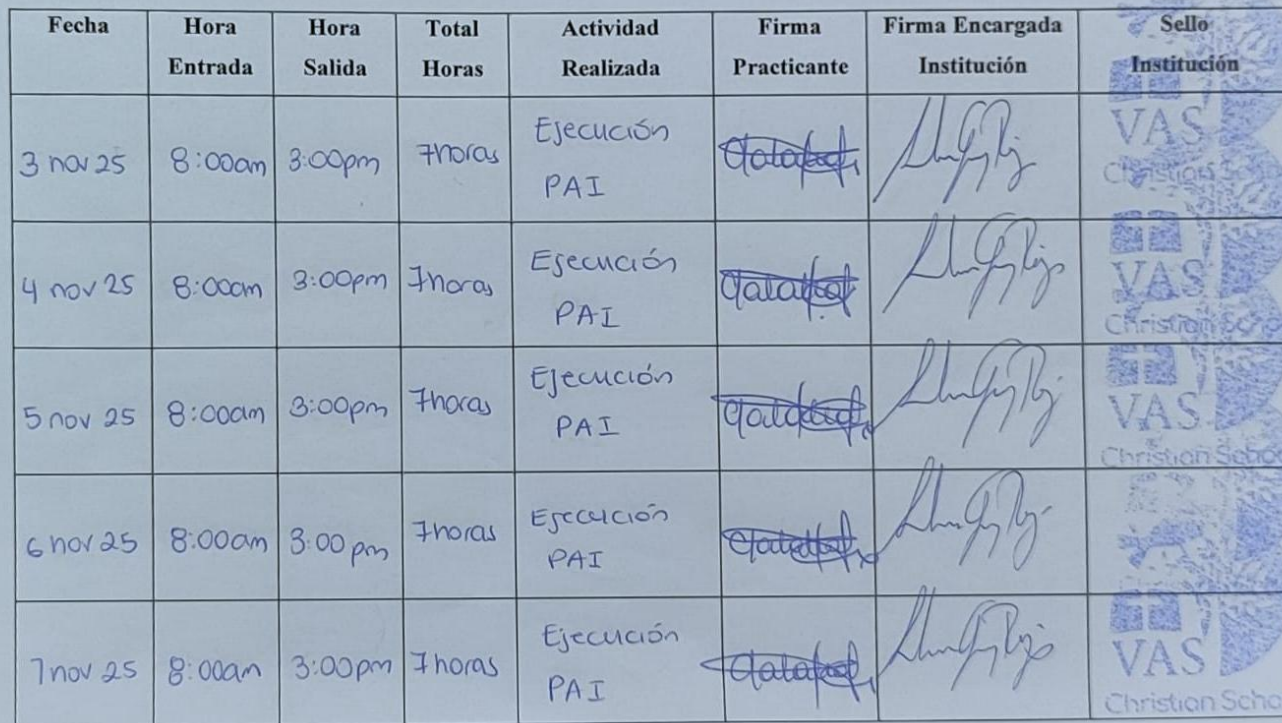 Fecha Hora Entrada Hora Salida Total Horas Actividad Realizada Firma Practicante Firma Encargada Institución Sello Institución
3 nov 25 8:00am 3:00pm 7horas Ejecución PAI VAS Christian Scho
4 nov 25 8:00am 3:00pm 7horas Ejecución PAI VAS Christian Scho
5 nov 25 8:00am 3:00pm 7horas Ejecución PAI VAS Christian Schoo
6 nov 25 8:00am 3:00pm 7horas Ejecución PAI
7 nov 25 8:00am 3:00pm 7horas Ejecución PAI VAS Christian Scho